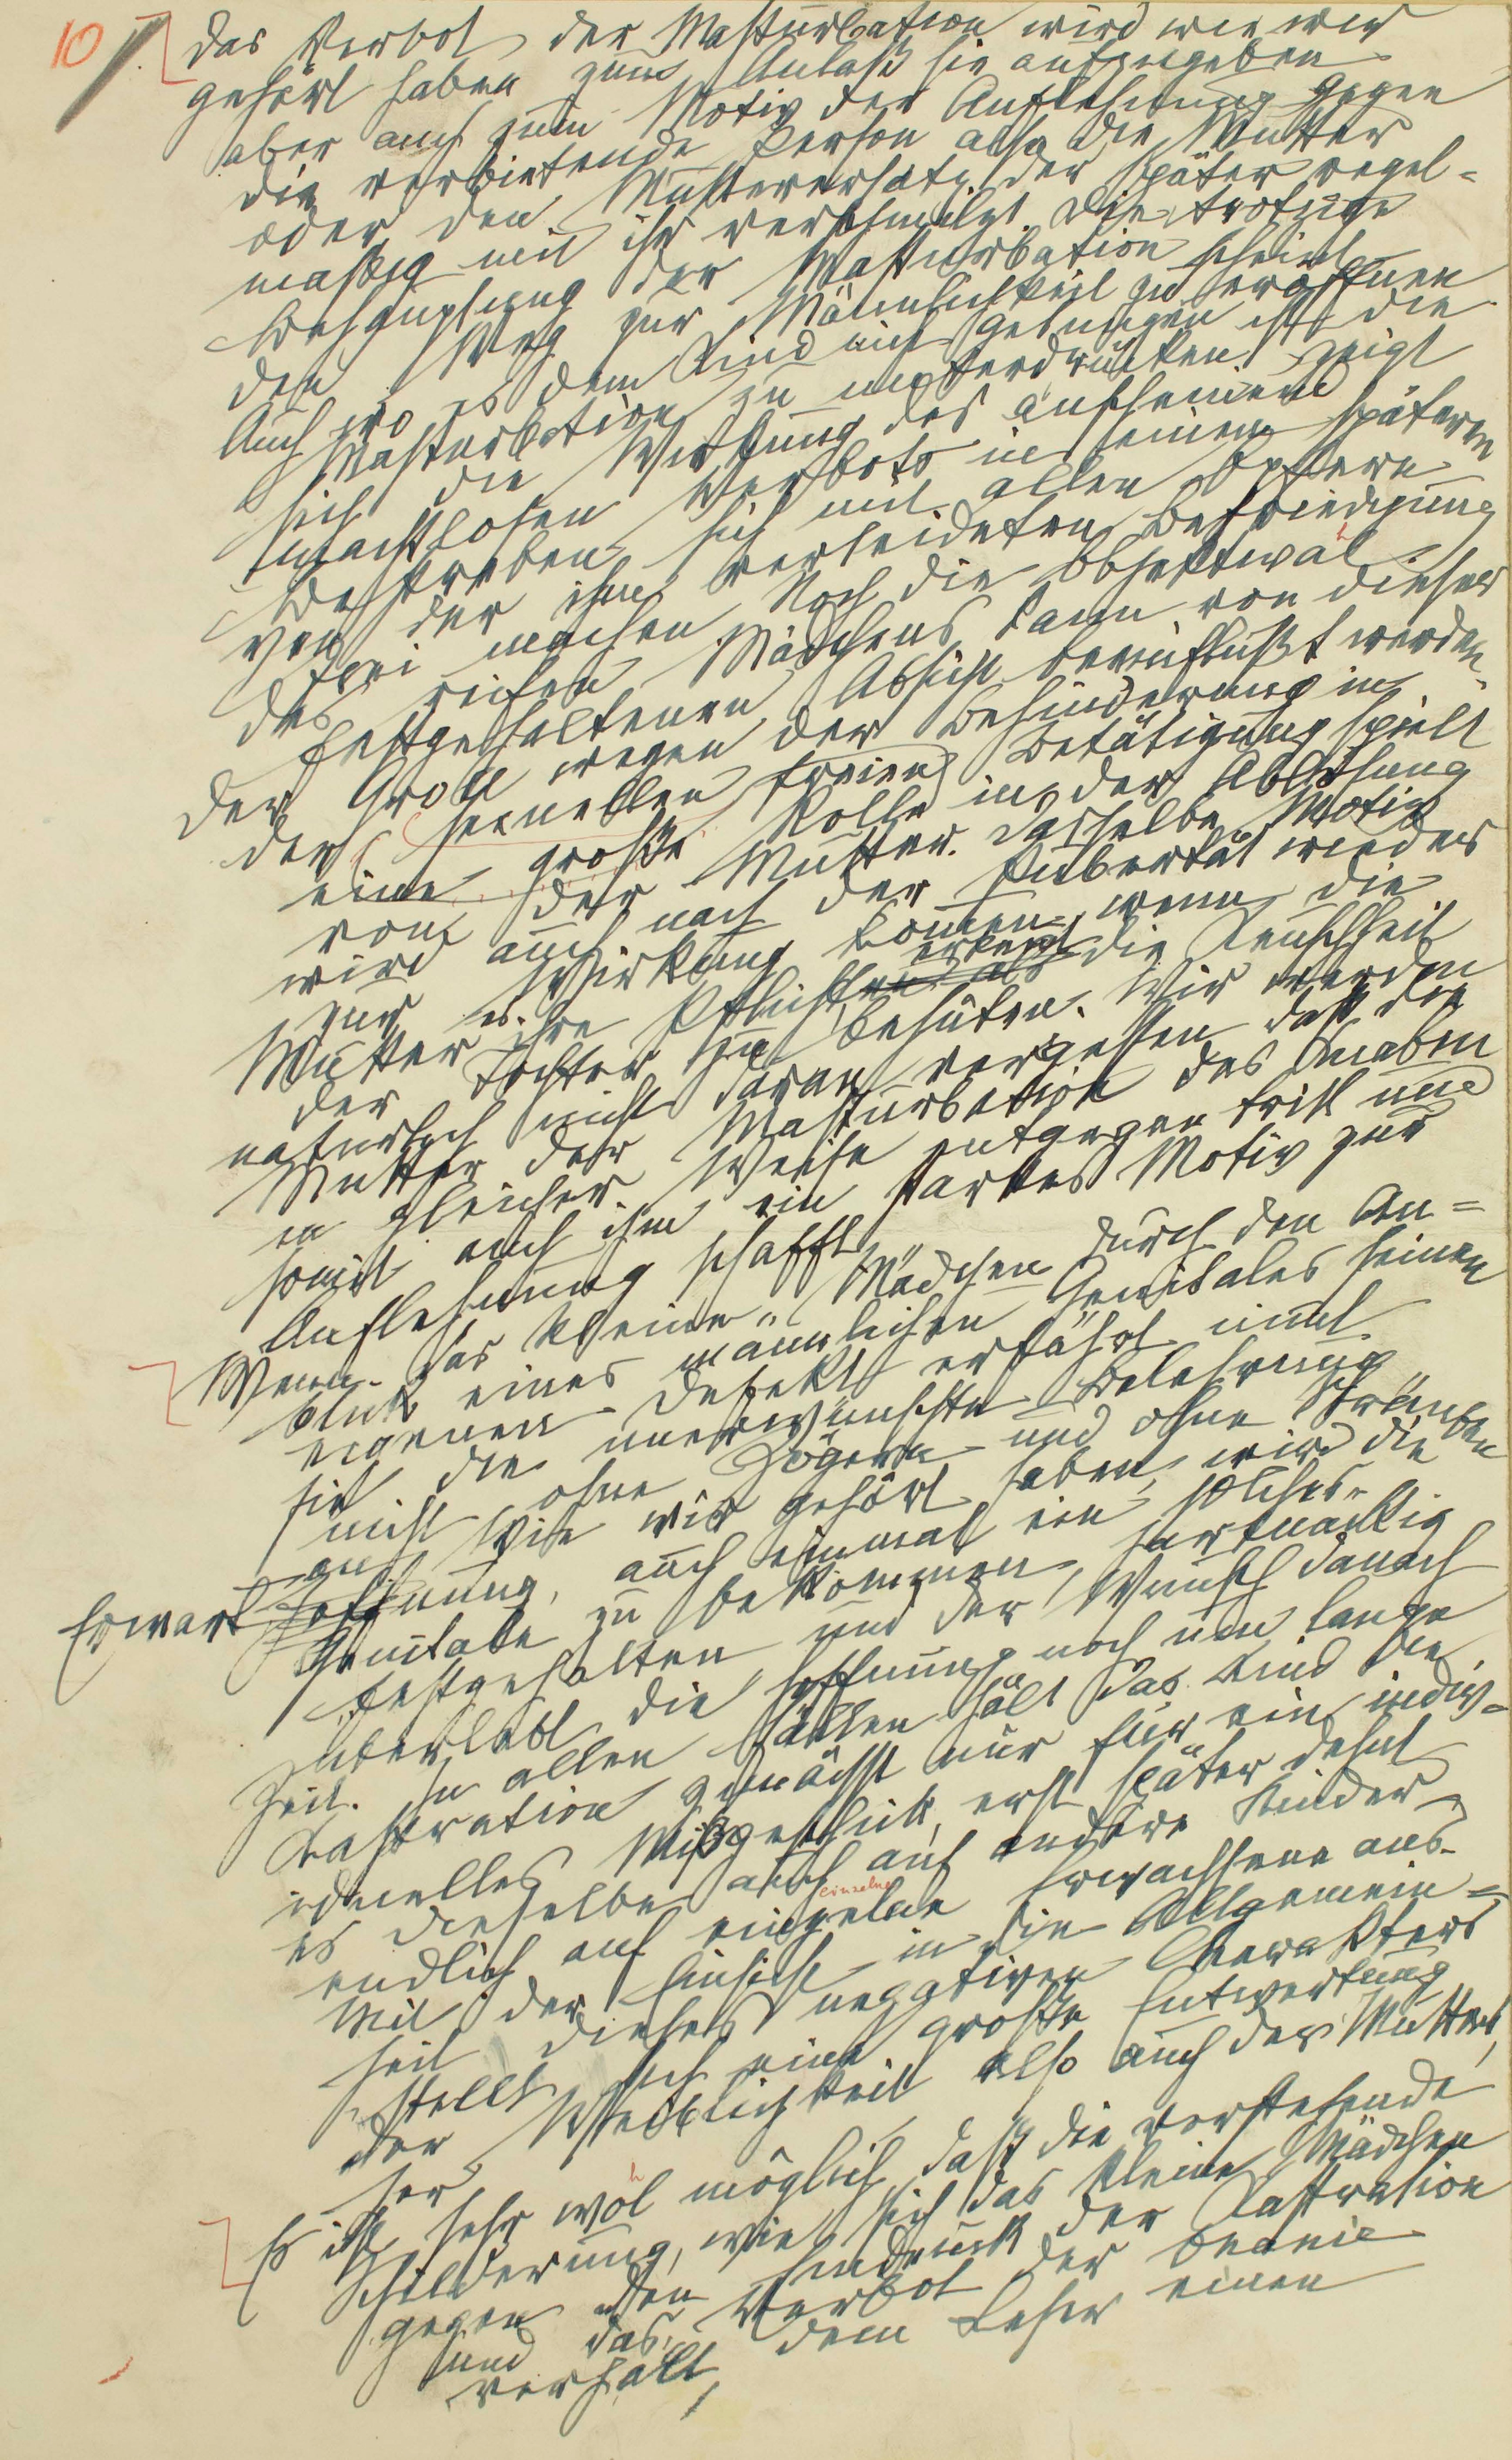 10
Das Verbot der Masturbation wird wie wir
gehört haben zum Anlaß sie aufzugeben
aber auch zum Motiv der Auflehnung gegen
die verbietende Person also die Mutter
oder den Mutterersatz der später regel=
mäßig mit ihr verschmilzt. Die trotzige
Behauptung der Masturbation scheint
den Weg zur Männlichkeit zu eröffnen
Auch wo es dem Kind nicht gelungen ist die
Masturbation zu unterdrücken zeigt
sich die Wirkung des anscheinend
machtlosen Verbots in seinem späteren
Bestreben sich mit allen Opfern
von der ihm verleideten Befriedigung
frei machen. Noch die Objektwahl
des reifen Mädchens kann von dieser
festgehaltenen Absicht beeinflußt werden.
Der Groll wegen der Behinderung in
der freien sexuellen Betätigung spielt
eine große Rolle in der Ablösung
von der Mutter. Dasselbe Motiv
wird auch nach der Pubertät wieder
zur Wirkung kommen, wenn die
Mutter es ihre Pflicht erkennt die Keuschheit
der Tochter zu behüten. Wir werden
natürlich nicht daran vergessen daß die
Mutter der Masturbation des Knaben
in gleicher Weise entgegen tritt und
somit auch ihm ein starkes Motiv zur
Auflehnung schafft
Wenn das kleine Mädchen durch den An=
blick eines männlichen Genitales seinen
eigenen Defekt erfährt nimmt
sie die unerwünschte Belehrung
nicht ohne Zögern und ohne Sträuben
an. Wie wir gehört haben wird die
Erwartung, auch einmal ein solches
Genitale zu bekommen, hartnäckig
festgehalten und der Wunsch danach
überlebt die Hoffnung noch um lange
Zeit. In allen Fällen hält das Kind die
Kastration zunächst nur für ein indiv=
iduelles Mißgeschick, erst später dehnt
es dieselbe auch auf andere Kinder
endlich auf einzelne Erwachsene aus.
Mit der Einsicht in die Allgemein=
heit dieses negativen Charakters
stellt sich eine große Entwertung
der Weiblichkeit also auch der Mutter,
her
Es ist sehr wohl möglich daß die vorstehende
Schilderung, wie sich das kleine Mädchen
gegen den Eindruck der Kastration
und das Verbot der Onanie
verhält, dem Leser einen